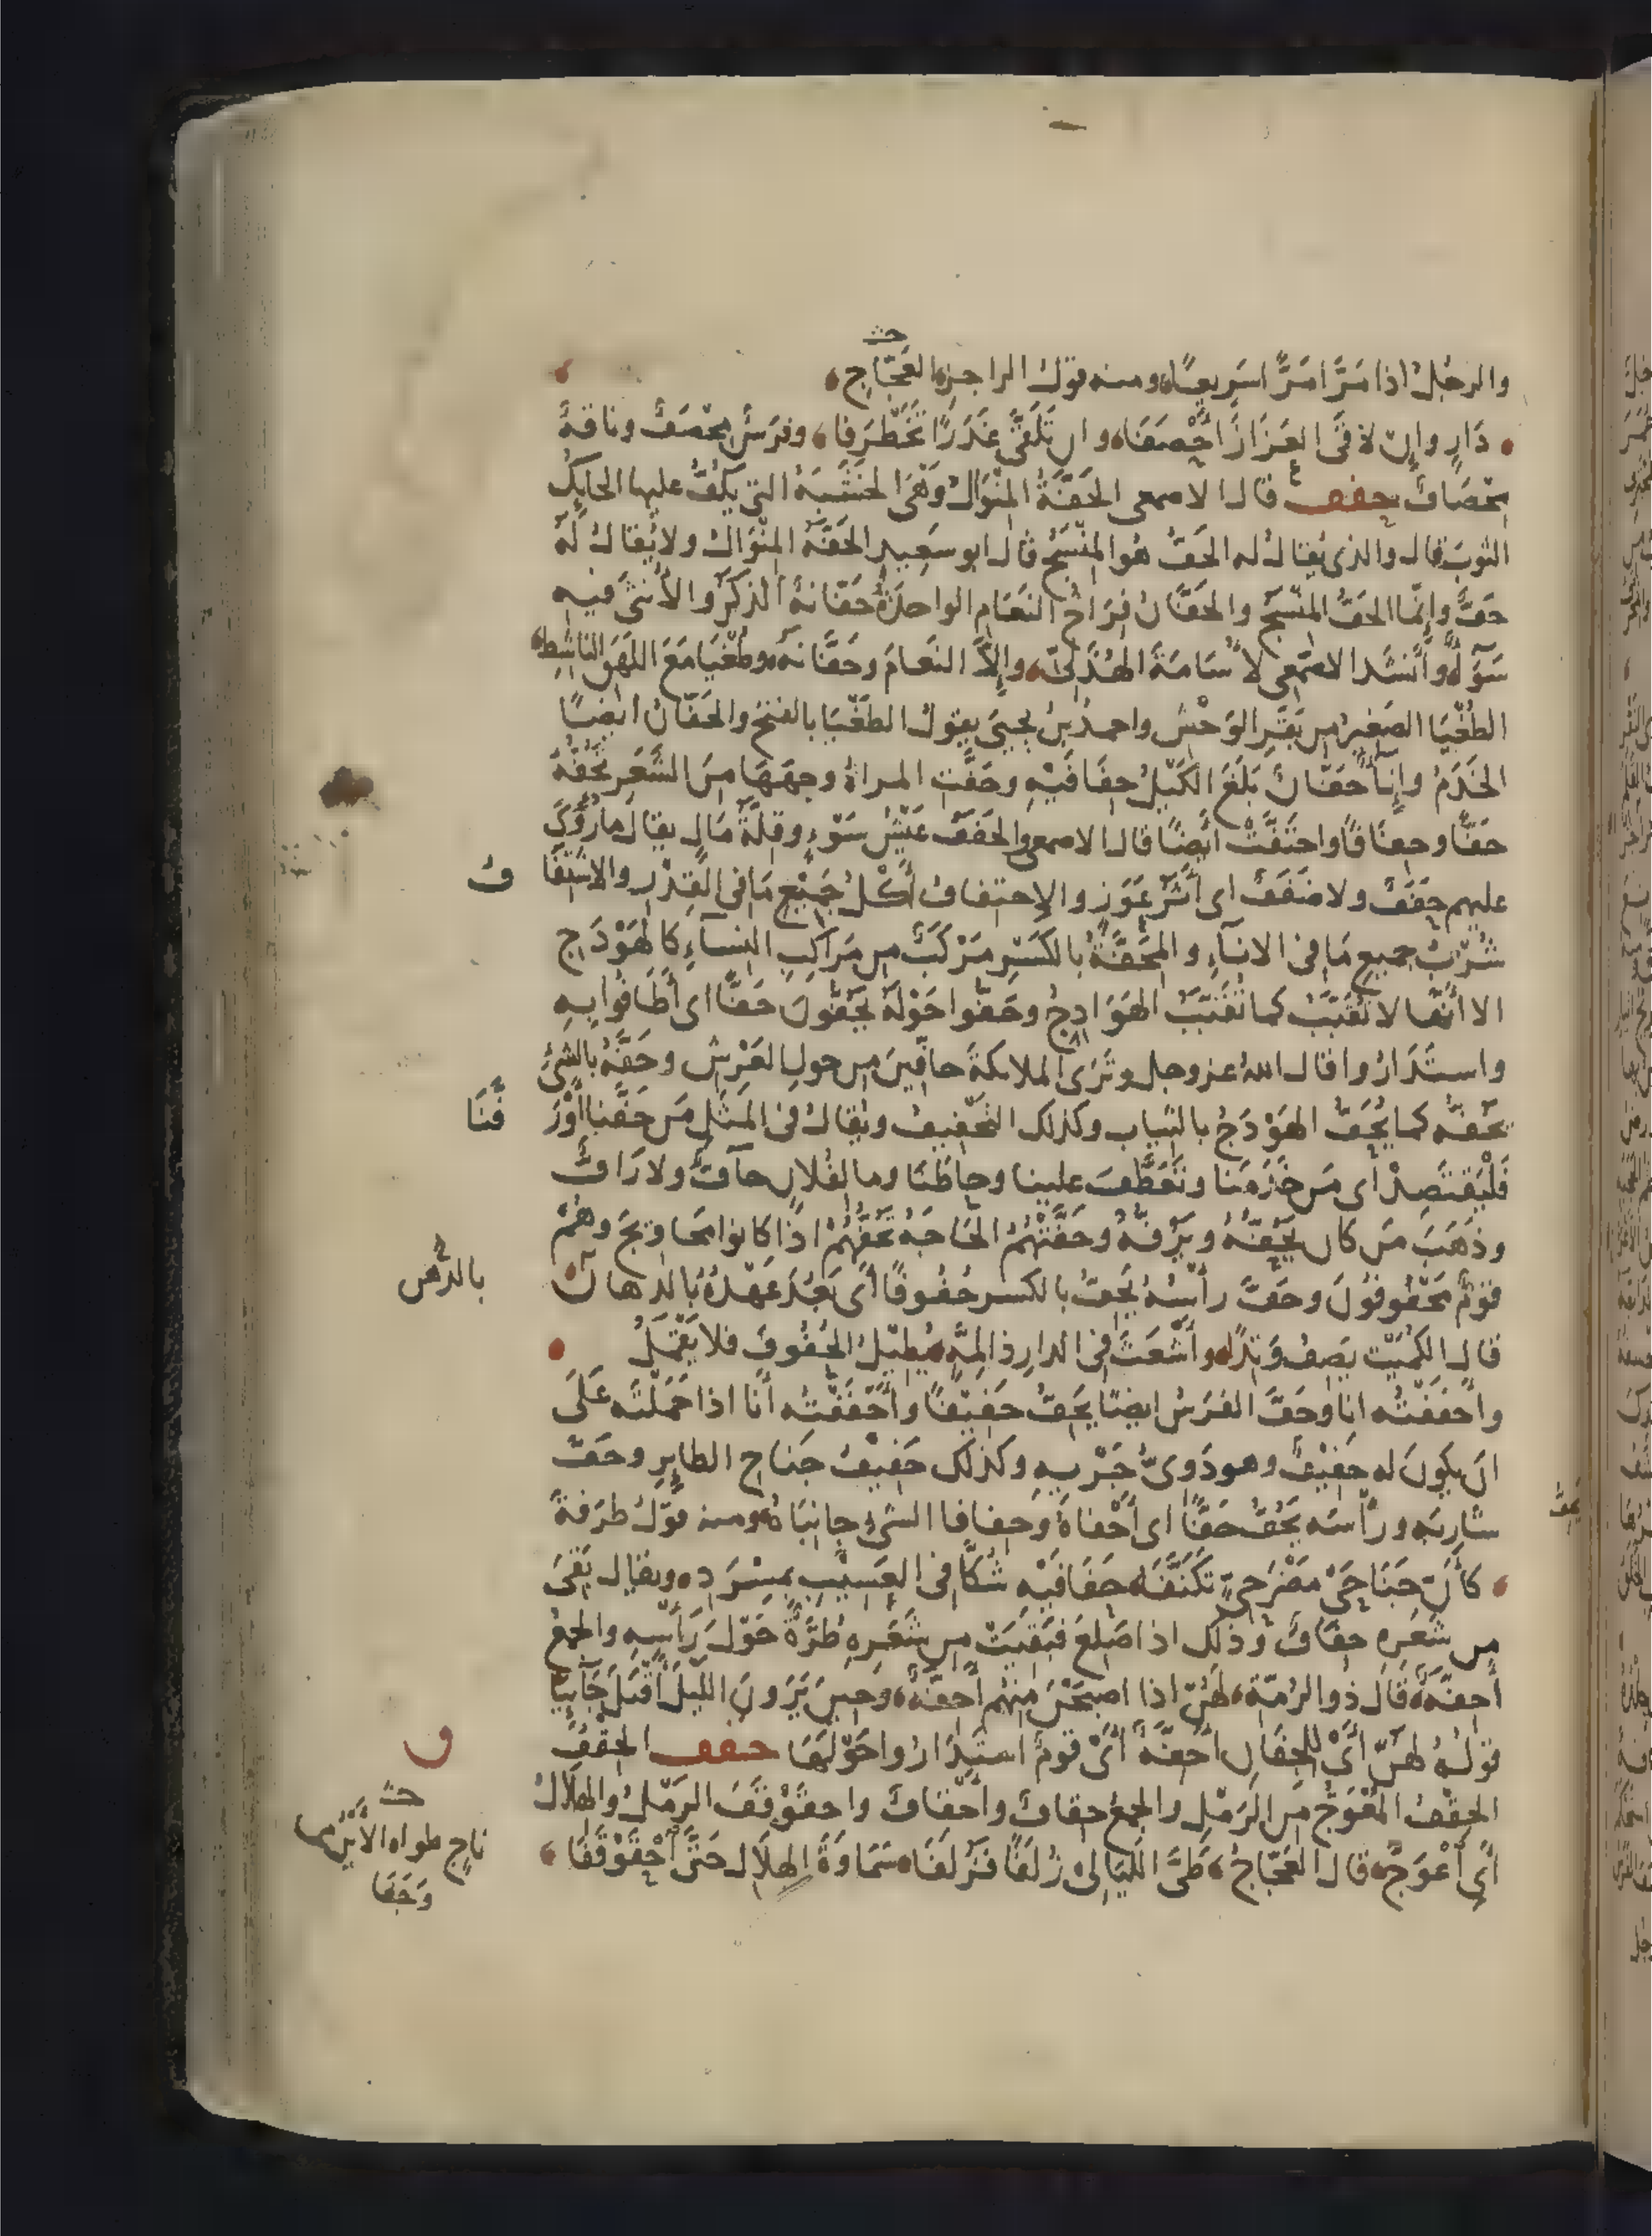 حث
والرجل اذا مَرَّ مَرًّا سَرِيعًا ومنه قول الراجز العَجَّاج
ذَارٍ وإن لاقَى العَزَازَ أَحْصَفَا وان تَلَقَّى غَدَرًا تَخَطْرَفا وفرسٌ مِحْصَفٌ وناقةٌ
مِحْصَافٌ حفف قال الاصمعي الحَفَّةُ المِنْوَالُ وَهْيَ الخَشَبَةُ التي يَلُفُّ عليها الحايِكُ
الثوبَ قال والذي يُقالُ له الحَفُّ هُوَ المِنْسَجُ قال ابو سَعِيدٍ الحَفَّةُ المِنْوَالُ ولا يُقالُ لَهُ
حَفٌّ وإِنَّما الحَفُّ المِنْسَجُ والحَفَّانُ فِرَاخُ النَعَامِ الواحدةُ حَفَّانَةٌ الذَكَرُ والأُنثَى فيه
سَوَآءٌ وأَنشَدَ الاصمَعي لأُسَامَةَ الهُذَلِيِّ وإِلاَّ النَعَامَ وحَفَّانَهُ وطُغْيَا مَعَ اللَهَقِ الناشِطِ
الطُغْيَا الصَغِيرُ من بَقَرِ الوَحْشِ واحمدُ بنُ يحيىَ يقولُ الطَغْيَا بالفتح والحَفّانُ ايضًا
الخَدَمُ وإِنَآءٌ حَفّانُ بَلَغَ الكَيْلُ حِفَافَيْهِ وحَفَّتِ المراةُ وجهَهَا مِنَ الشَّعَرِ تَحُفُّهُ
حَفًّا وحِفَافًا واحتَفَّتْ أيضًا قال الاصمعي والحَفَفُ عَيْشُ سَوْءٍ وقِلَّةُ مَالٍ يقال مَا رُؤِيَ
عليهم حَفَفٌ ولا ضَفَفٌ اى أَثَرُ عَوَزٍ والإحتِفافُ أَكْلُ جَمِيْعِ مَا فى القِدْرِ والاشتِفَا
فُ
شُرْبُ جميعِ مَا فى الانآءِ والمِحَفَّةُ بالكَسْرِ مَرْكَبٌ من مَرَاكِبِ النِسآءِ كالهَوْدَجِ
الا أَنَّها لا تُقَبَّبُ كما تُقَبَّبُ الهَوَادِجُ وحَفُّوا حَوْلَهُ يَحُفُّونَ حَفًّا اى أَطَافُوا بِهِ
واستَدَارُوا قال اللهُ عز وجل وتَرَى الملائكةَ حافِّينَ من حولِ العَرْشِ وحَفَّهُ بالشئِ
يَحُفُّهُ كما يُحَفُّ الهَوْدَجُ بالثياب وكذلك التَحْفِيفُ ويُقالُ فى المَثَلِ مَن حَفَّنا أَوْرَ
فَّنَا
فَلْيَقْتَصِدْ اى مَن خَدَمَنا وتَعَطَّفَ علينا وحاطَنَا وما لِفُلانٍ حآفٌّ ولا رَافٌّ
وذَهَبَ مَن كان يَحُفُّهُ ويَرُفُّهُ وحَفَّتْهُمُ الحَاجَةُ تَحُفُّهُمْ اذا كانوا مَحاوِيجَ وهُمْ
قَوْمٌ مَحْفُوفُونَ وحَفَّ رأْسُهُ يَحِفُّ بالكسر حُفُوفًا أَىْ بَعُدَ عَهْدُهُ بالدهان
بالدُّهن
قال الكُمَيْت يَصِفُ وَتِدًا وأَشْعَثَ فى الدارِ ذا لِمَّةٍ يُطِيْلُ الحُفُوفَ فلا يَقْمَلُ
وأَحفَفْتُه انا وحَفَّ الفَرَسُ ايضًا يَحِفُّ حَفِيْفًا وأَحْفَفْتُه أَنَا اذا حَمَلْتَه عَلَى
ان يكونَ له حَفِيْفٌ وهو دَوِىُّ جَرْيِهِ وكذلك حَفِيْفُ جَناحِ الطايِرِ وحَفَّ
شَارِبَه ورَأْسَه يَحُفُّ حَفًّا اى أَحْفَاهُ وحِفافا الشئِ جانِبَاهُ ومنه قَوْلُ طَرَفةَ
كأَنَّ جَنَاحَىْ مَضْرَحِىٍّ تَكَنَّفَا حِفَافَيْهِ شُكَّا فى العَسِيْبِ بِمِسْرَدِ ويقال بَقِىَ
من شَعَرِهِ حِفَافٌ وذلك اذا صَلِعَ فبَقِيَتْ من شَعَرِهِ طُرَّةٌ حَوْلَ رَأْسِهِ والجمعُ
أَحِفَّةٌ قَالَ ذُو الرُمَّةِ لَهُنَّ اذا اصبَحْنَ مِنْهُم أَحِفَّةٌ وحِينَ يَرَونَ اللَيْلَ أَقْبَلَ جَآئِيًا
قَوْلُهُ لَهُنَّ أَىْ لِلجِفَانِ أَحِفَّةٌ أَىْ قومٌ استَدَارُوا حَوْلَهَا حقف الحِقْفُ
ف
الحِقْفُ المُعْوَجُّ مِنَ الرَمْلِ والجمعُ حِقافٌ وأَحْقافٌ واحقَوْقَفَ الرَمْلُ والهِلالُ
أَىِ أَعْوَجَّ قال العَجّاجُ طَىَّ اللَيَالِىْ زُلَفًا فَزُلَفَا سَمَاوَةَ الهِلَالِ حَتَّى احْقَوْقَفَا
حث
ناجٍ طواه الأَيْنُ مما
وَجَفَا